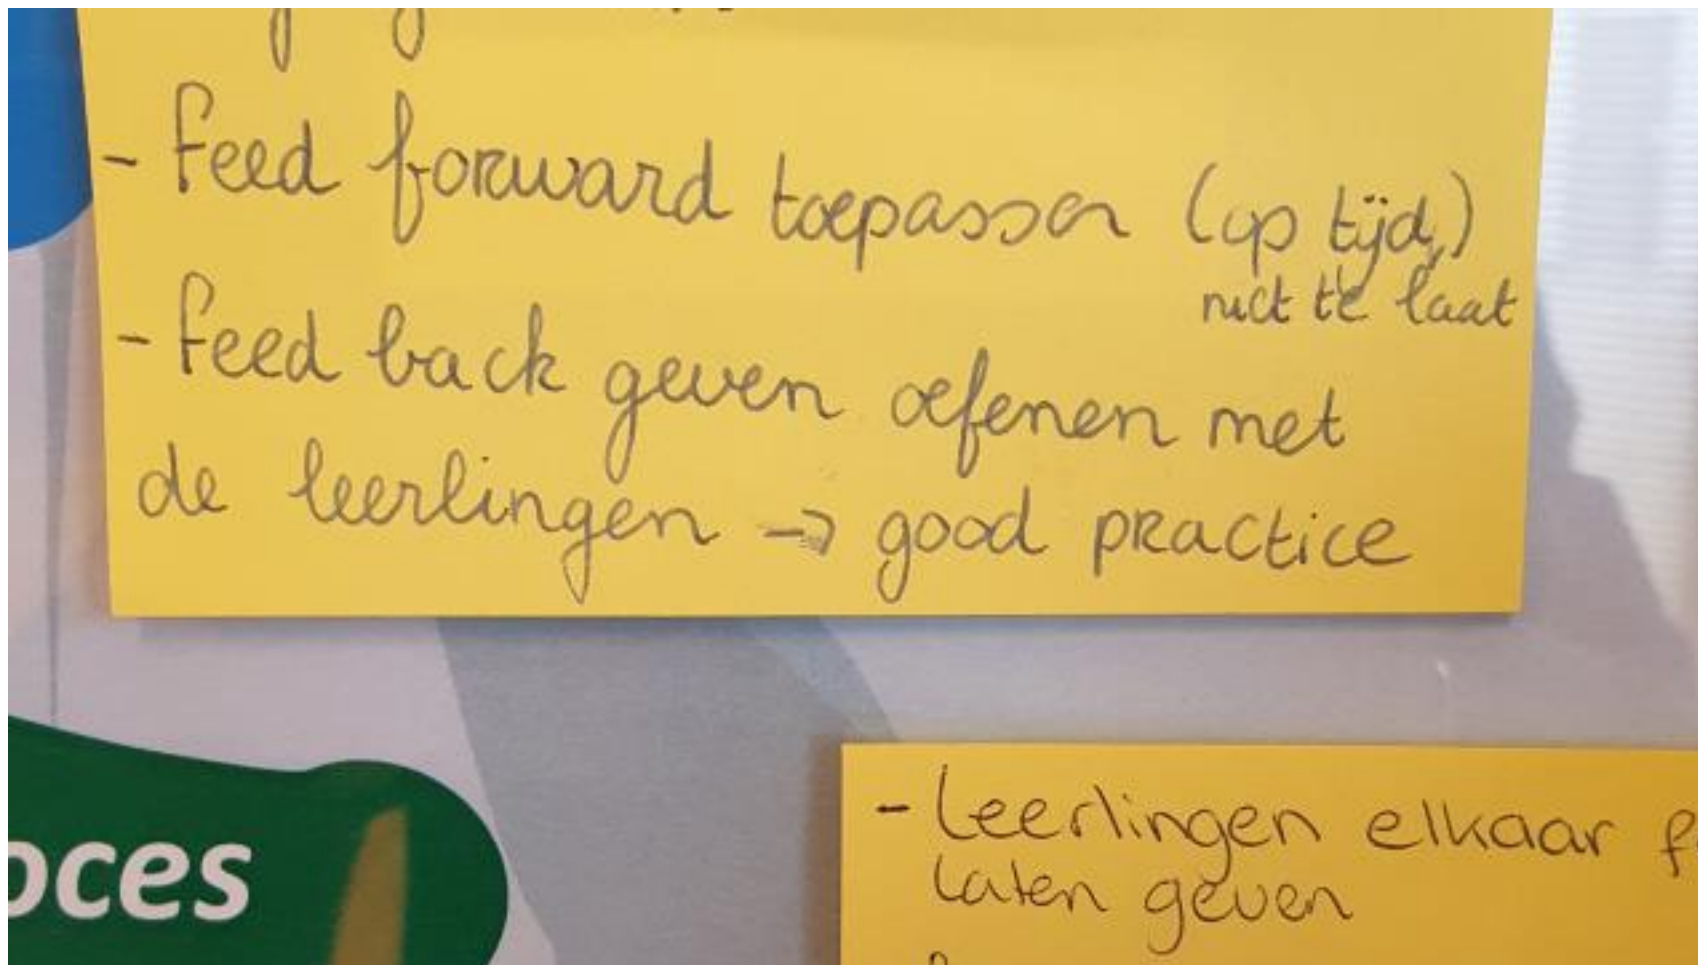 - Feed forward toepassen (op tijd,)
niet te laat
- Feed back geven oefenen met
de leerlingen → good practice
oces
- Leerlingen elkaar f
laten geven